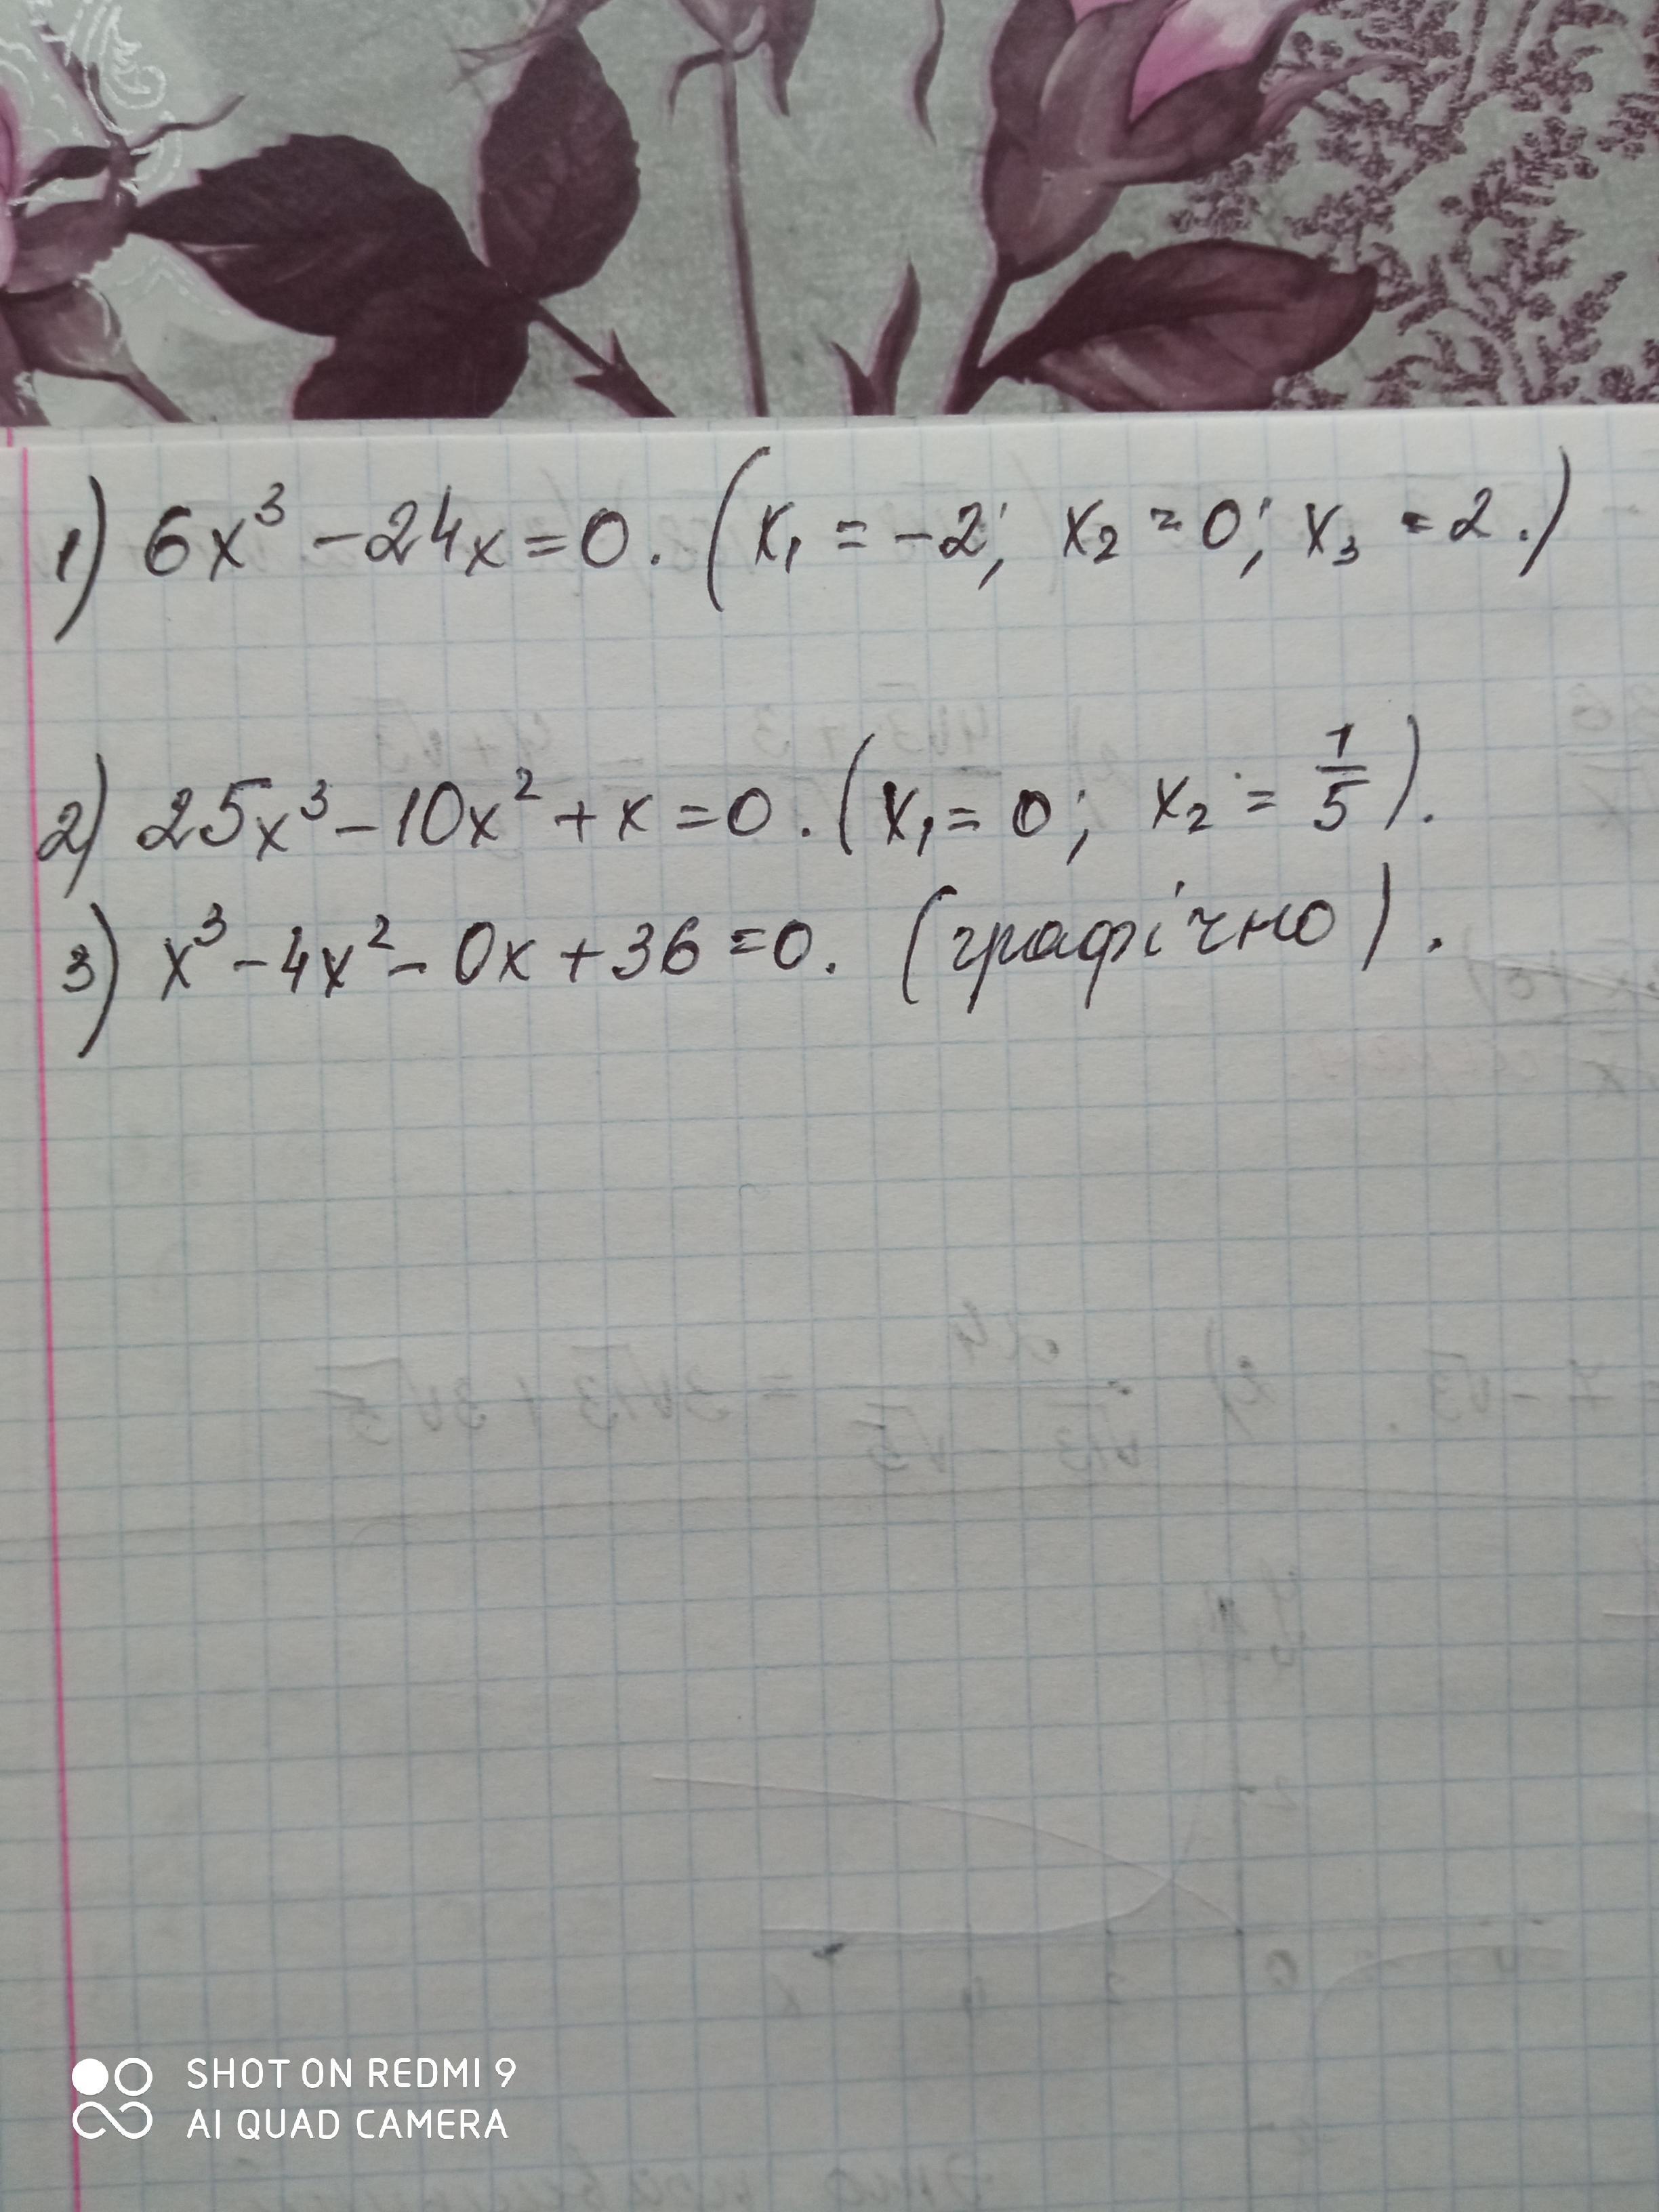 1) 6x³ - 24x = 0. (x₁ = -2; x₂ = 0; x₃ = 2.)
2) 25x³ - 10x² + x = 0. (x₁ = 0; x₂ = 1/5).
3) x³ - 4x² - 0x + 36 = 0. (графічно).
SHOT ON REDMI 9
AI QUAD CAMERA